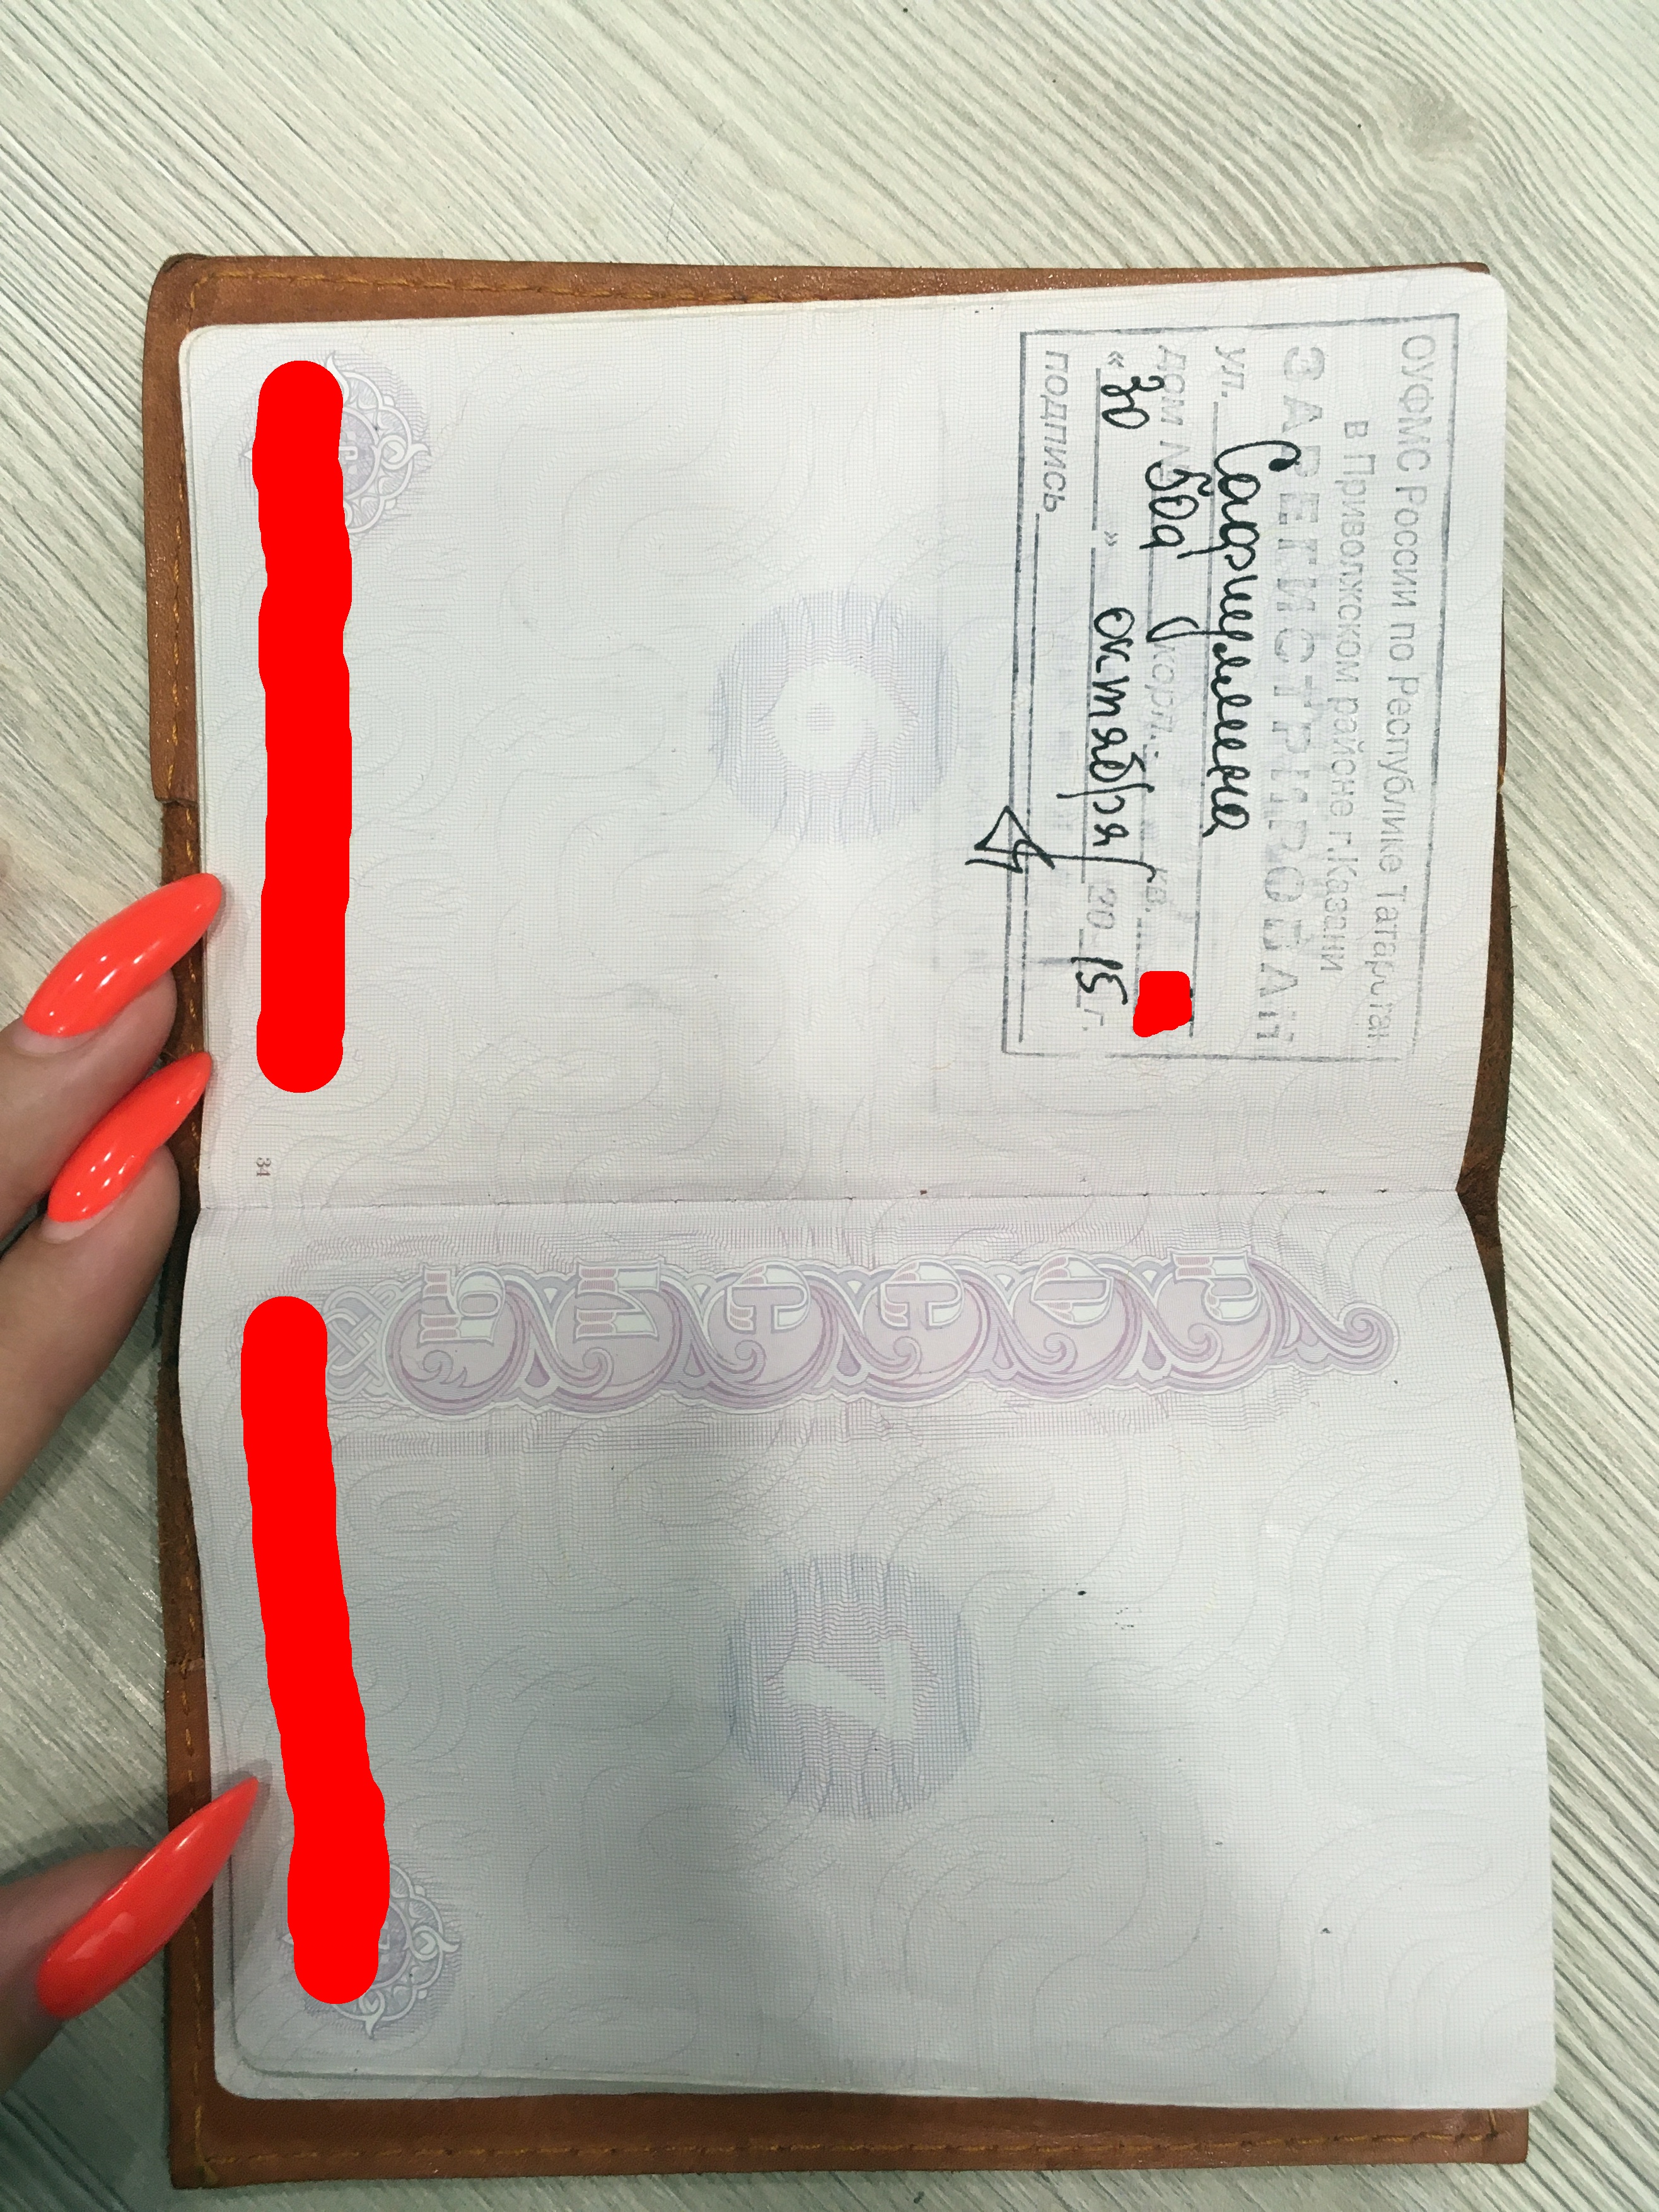 ОУФМС России по Республике Татарстан
в Приволжском районе г.Казани
ЗАРЕГИСТРИРОВАН
ул. Сафиуллина
дом № 50а корп. кв.
« 30 » октября 20 15 г.
подпись